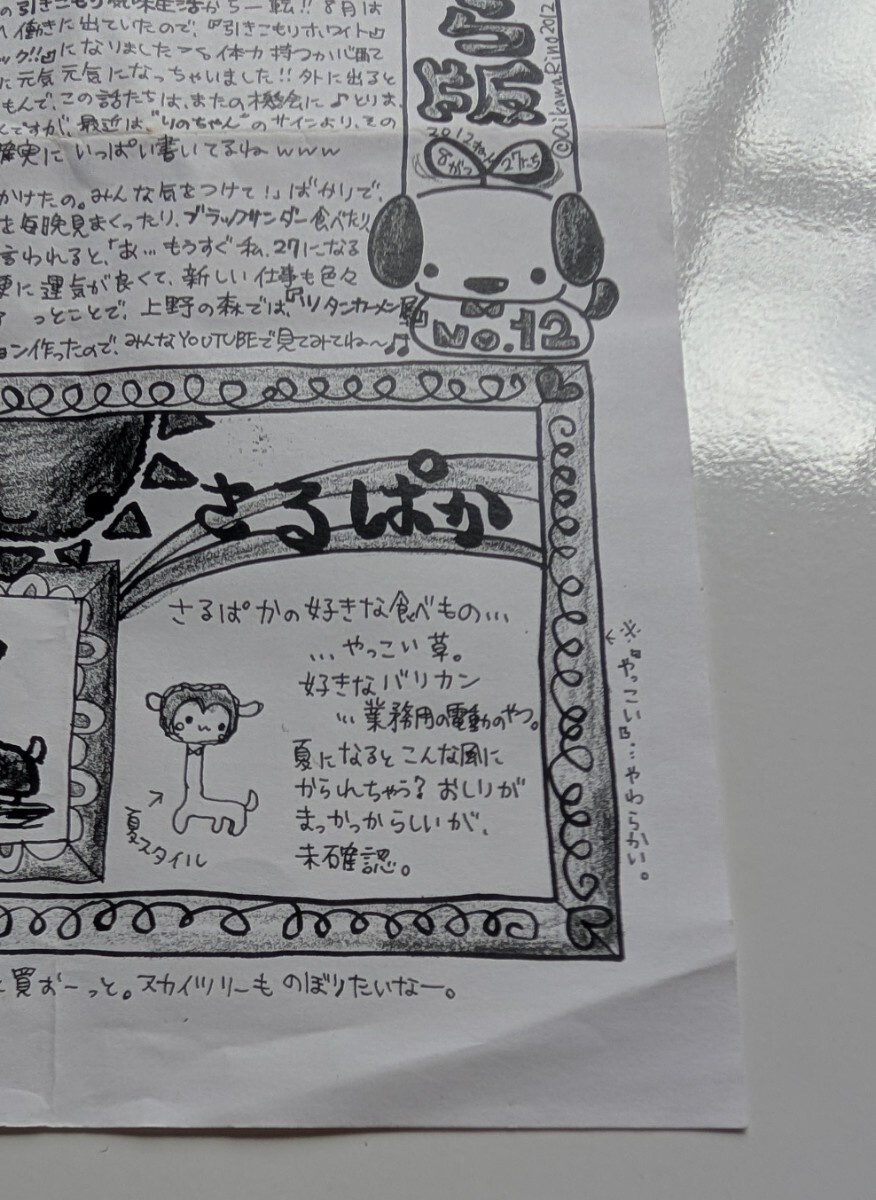 の引きこもり気味生活から一転!! 8月は
働きに出ていたので、『引きこもりホワイト』
ック!!』になりました〜
に元気元気になっちゃいました!! 外に出ると
もんで、この話たちは、またの機会に♪とりま、
んですが、最近は“りのちゃん”のサインより、その
確実にいっぱい書いてるねwww
かけたの。みんな気をつけて!」ばかりで、
を毎晩見まくったり、ブラックサンダー食べたり
言われると、「あ…もうすぐ私、27になる
更に運気が良くて、新しい仕事も色々
っとことで、上野の森では、『ツタンカーメン展』
ョン作ったので、みんなYOUTUBEで見てみてね〜♫
©aikawaRino2012
2012ねん
8がつ
27にち
No.12
さるぱか
さるぱかの好きな食べもの…
…やっこい草。
好きなバリカン
…業務用の電動のやつ。
夏になるとこんな風に
かられちゃう? おしりが
まっかっからしいが、
未確認。
夏スタイル
※『やっこい』…やわらかい。
買おーっと。スカイツリーものぼりたいなー。